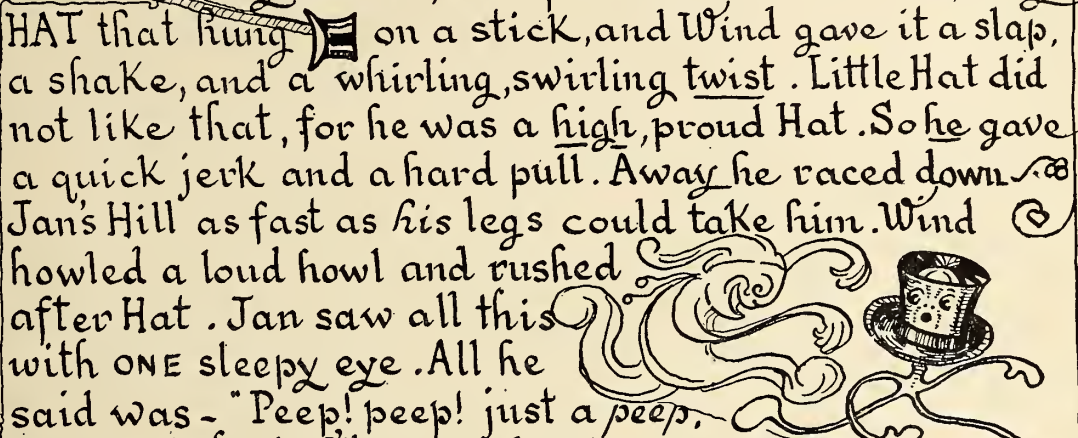 HAT that hung on a stick, and Wind gave it a slap,
a shake, and a whirling, swirling twist. Little Hat did
not like that, for he was a high, proud Hat. So he gave
a quick jerk and a hard pull. Away he raced down
Jan's Hill as fast as his legs could take him. Wind
howled a loud howl and rushed
after Hat. Jan saw all this
with ONE sleepy eye. All he
said was - "Peep! peep! just a peep,